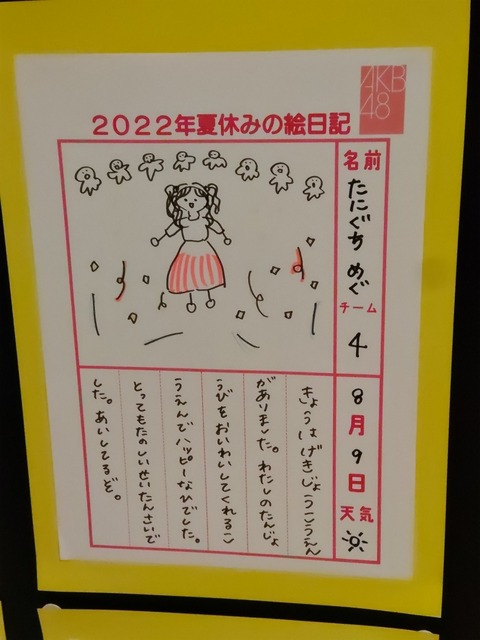 AKB
48
2022年夏休みの絵日記
名前
たにぐち めぐ
チーム
4
8月9日
天気
きょうはげきじょうこうえん
がありました。わたしのたんじょ
うびをおいわいしてくれるこ
うえんでハッピーなひでした。
とってもたのしいせいたんさいで
した。あいしてるぞ。